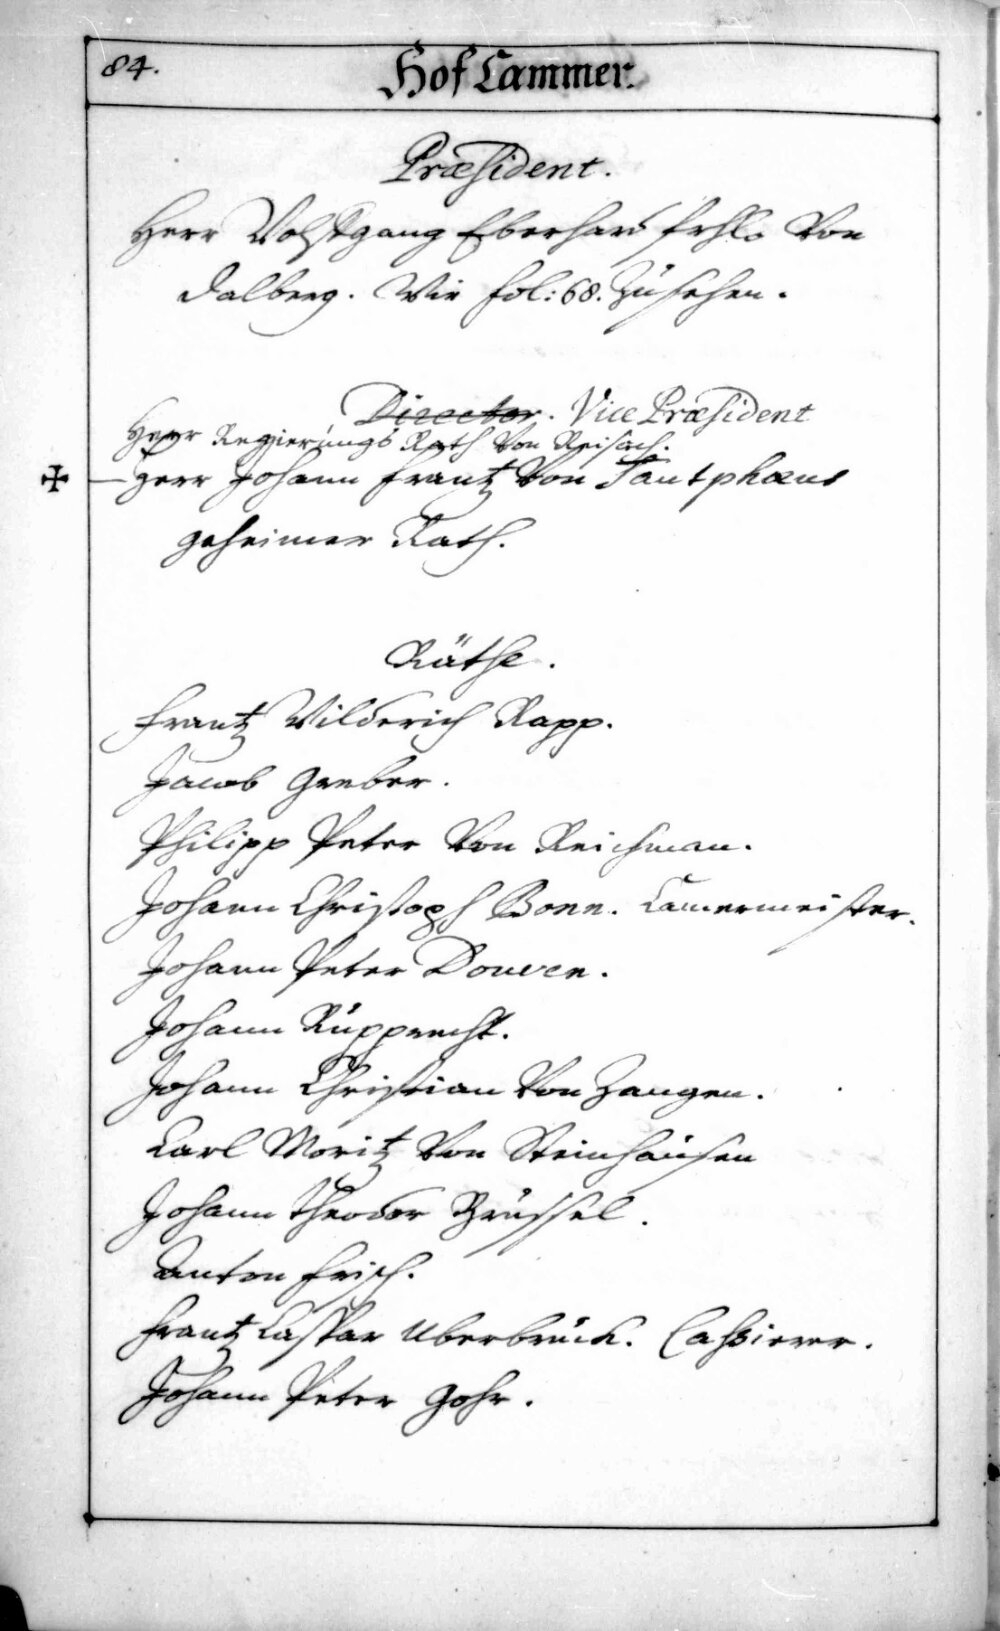 84.
Hof Cammer.
Præsident.
Herr Wolffgang Eberhard frhl. von
Dalberg. Wie fol: 68. zu sehen.
Director. Vice Præsident
Herr Regierungs Rath von Reisach.
Herr Johann Frantz von Tautphæus
geheimer Rath.
Räthe.
Frantz Wilderich Rapp.
Jacob Greber.
Philipp Peter von Reichman.
Johann Christoph Bonn. Camermeister.
Johann Peter Douven.
Johann Rüpprecht.
Johann Christian von Zangen.
Carl Moritz von Steinhausen
Johann Theodor Brüssel.
Anton Frisch.
Frantz Caspar Uberbrück. Cassierer.
Johann Peter Gohr.